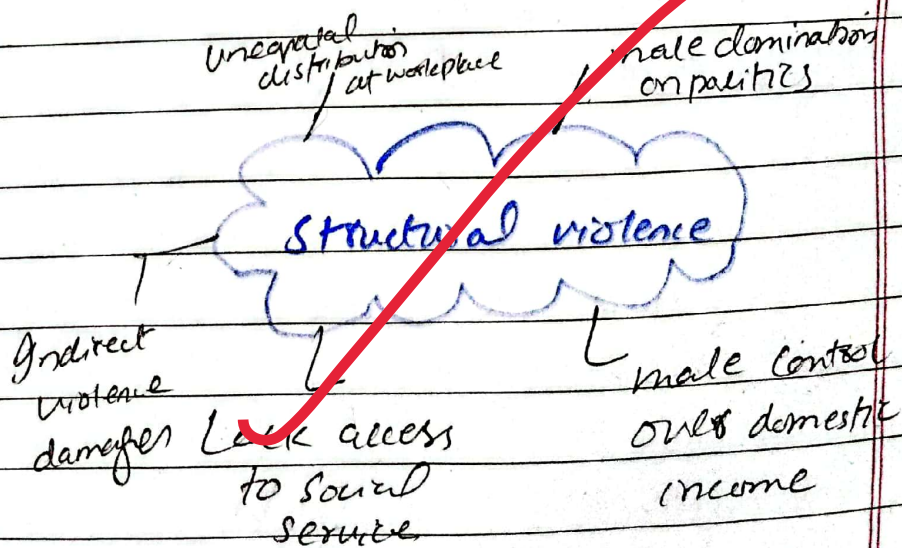 unequal
distribution
at workplace
male domination
on politics
Structural violence
Indirect
violence
damages
Lack access
to social
service
male control
over domestic
income